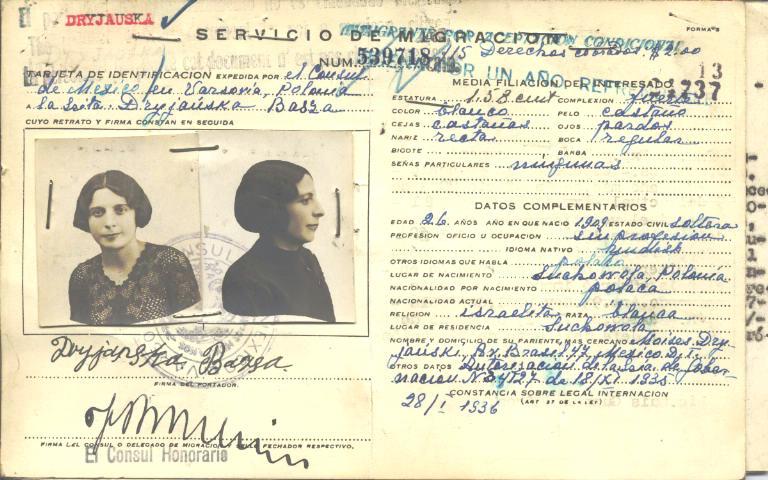 DRYJAUSKA
SERVICIO DE MIGRACION
FORMA 5
NUM. 539718
15 Derechos $2.00
TARJETA DE IDENTIFICACION EXPEDIDA POR el Consul
de Mexico en Varsovia, Polonia
A la Srita. Dryjanska Basza
CUYO RETRATO Y FIRMA CONSTAN EN SEGUIDA
Dryjanska Basza
FIRMA DEL PORTADOR
FIRMA DEL CONSUL O DELEGADO DE MIGRACION Y SELLO FECHADOR RESPECTIVO.
El Consul Honorario
POR UN AÑO
13
MEDIA FILIACION DEL INTERESADO
ESTATURA 1.58 cmt COMPLEXION fuerte
COLOR blanco PELO castaño
CEJAS castañas OJOS pardos
NARIZ recta BOCA regular
BIGOTE BARBA
SEÑAS PARTICULARES ningunas
DATOS COMPLEMENTARIOS
EDAD 26 AÑOS AÑO EN QUE NACIO 1909 ESTADO CIVIL soltera
PROFESION OFICIO U OCUPACION sin profesion
IDIOMA NATIVO
OTROS IDIOMAS QUE HABLA polaco
LUGAR DE NACIMIENTO Suchowola, Polonia
NACIONALIDAD POR NACIMIENTO polaca
NACIONALIDAD ACTUAL
RELIGION israelita RAZA blanca
LUGAR DE RESIDENCIA Suchowola
NOMBRE Y DOMICILIO DE SU PARIENTE MAS CERCANO Moises Dry
janski, Brasil 77, Mexico D.F.
OTROS DATOS Autorizacion de la Sria. de Gober
nacion N. de 18/XI. 1935
CONSTANCIA SOBRE LEGAL INTERNACION
(ART 37 DE LA LEY)
28/I 1936